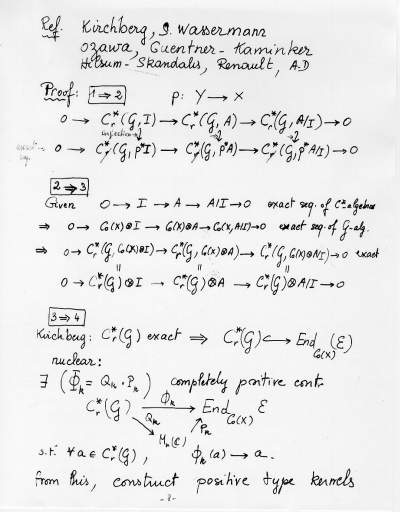 Ref. Kirchberg, S. Wassermann
Ozawa, Guentner-Kaminker
Hilsum-Skandalis, Renault, A.D
Proof: 1⇒2 p: Y → X
0 → C*r(G, I) → C*r(G, A) → C*r(G, A/I) → 0
injective
exact seq. 0 → C*r(G, p*I) → C*r(G, p*A) → C*r(G, p*A/I) → 0
2⇒3
Given 0 → I → A → A/I → 0 exact seq. of C*-algebras
⇒ 0 → C0(X)⊗I → C0(X)⊗A → C0(X, A/I) → 0 exact seq. of G-alg.
⇒ 0 → C*r(G, C0(X)⊗I) → C*r(G, C0(X)⊗A) → C*r(G, C0(X)⊗A/I) → 0 exact
0 → C*r(G)⊗I → C*r(G)⊗A → C*r(G)⊗A/I → 0
3⇒4
Kirchberg: C*r(G) exact ⇒ C*r(G) ↪ End C0(X) (ℰ)
nuclear:
∃ (Φk = Qk · Pk) completely positive cont.
C*r(G) Φk → End C0(X) ℰ
Qk Mn(ℂ) Pk
s.t. ∀ a ∈ C*r(G), ϕk(a) → a.
From this, construct positive type kernels
-8-